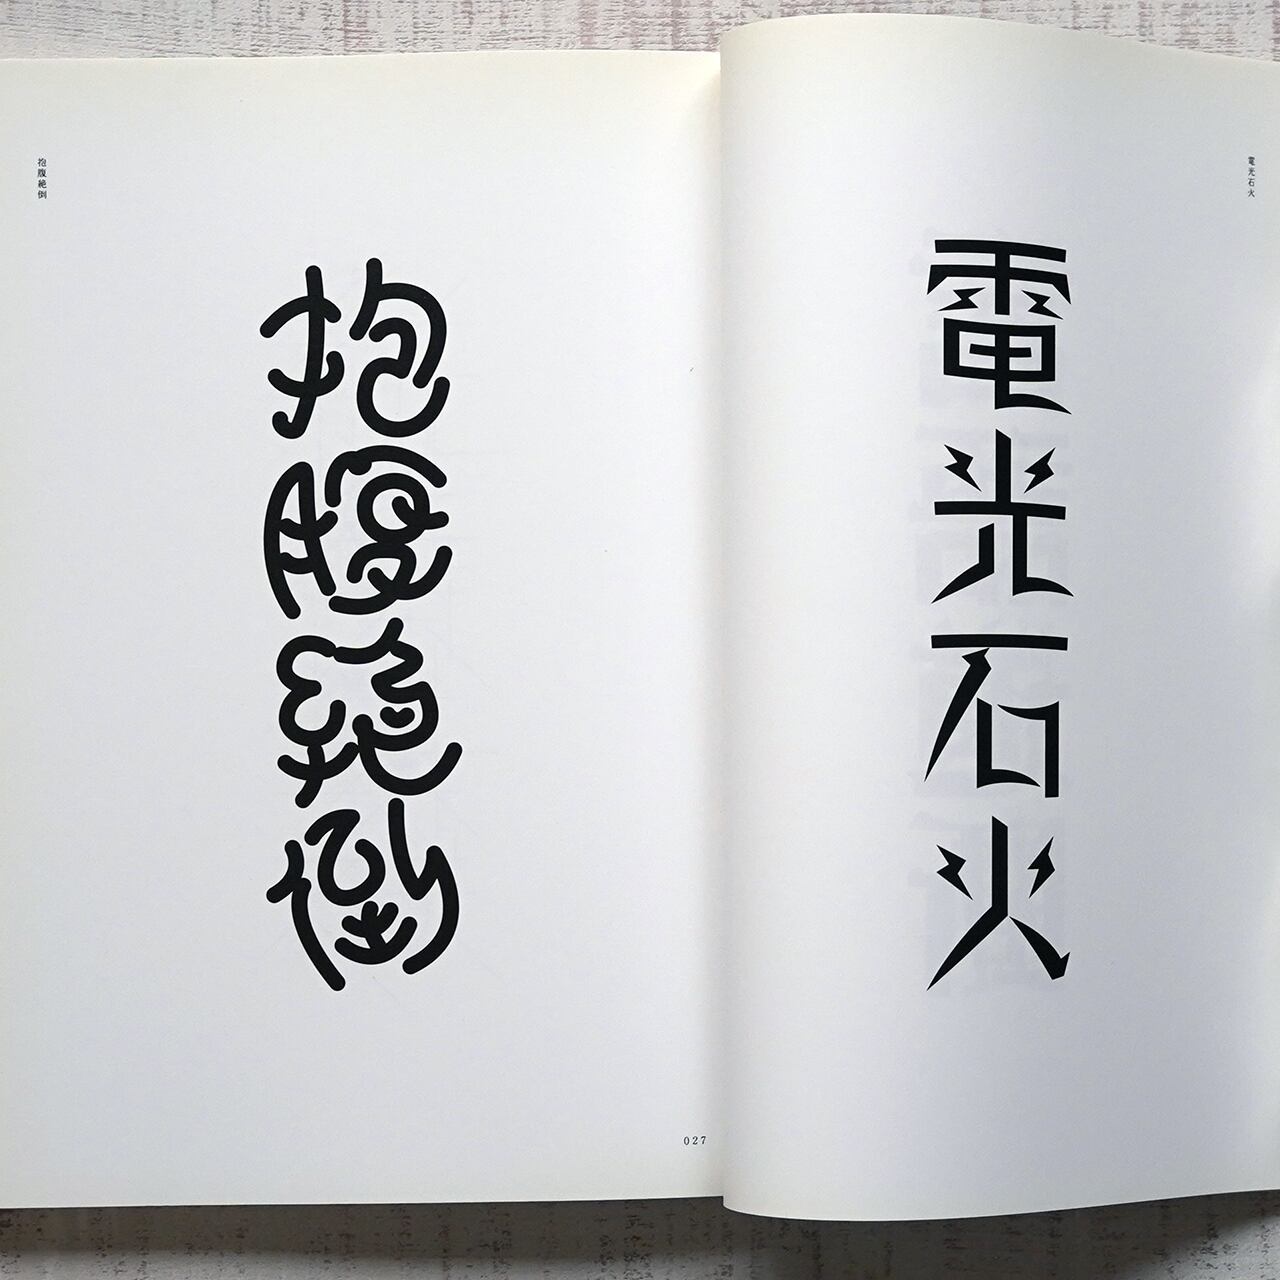 抱腹絶倒
抱腹絶倒
027
電光石火
電光石火